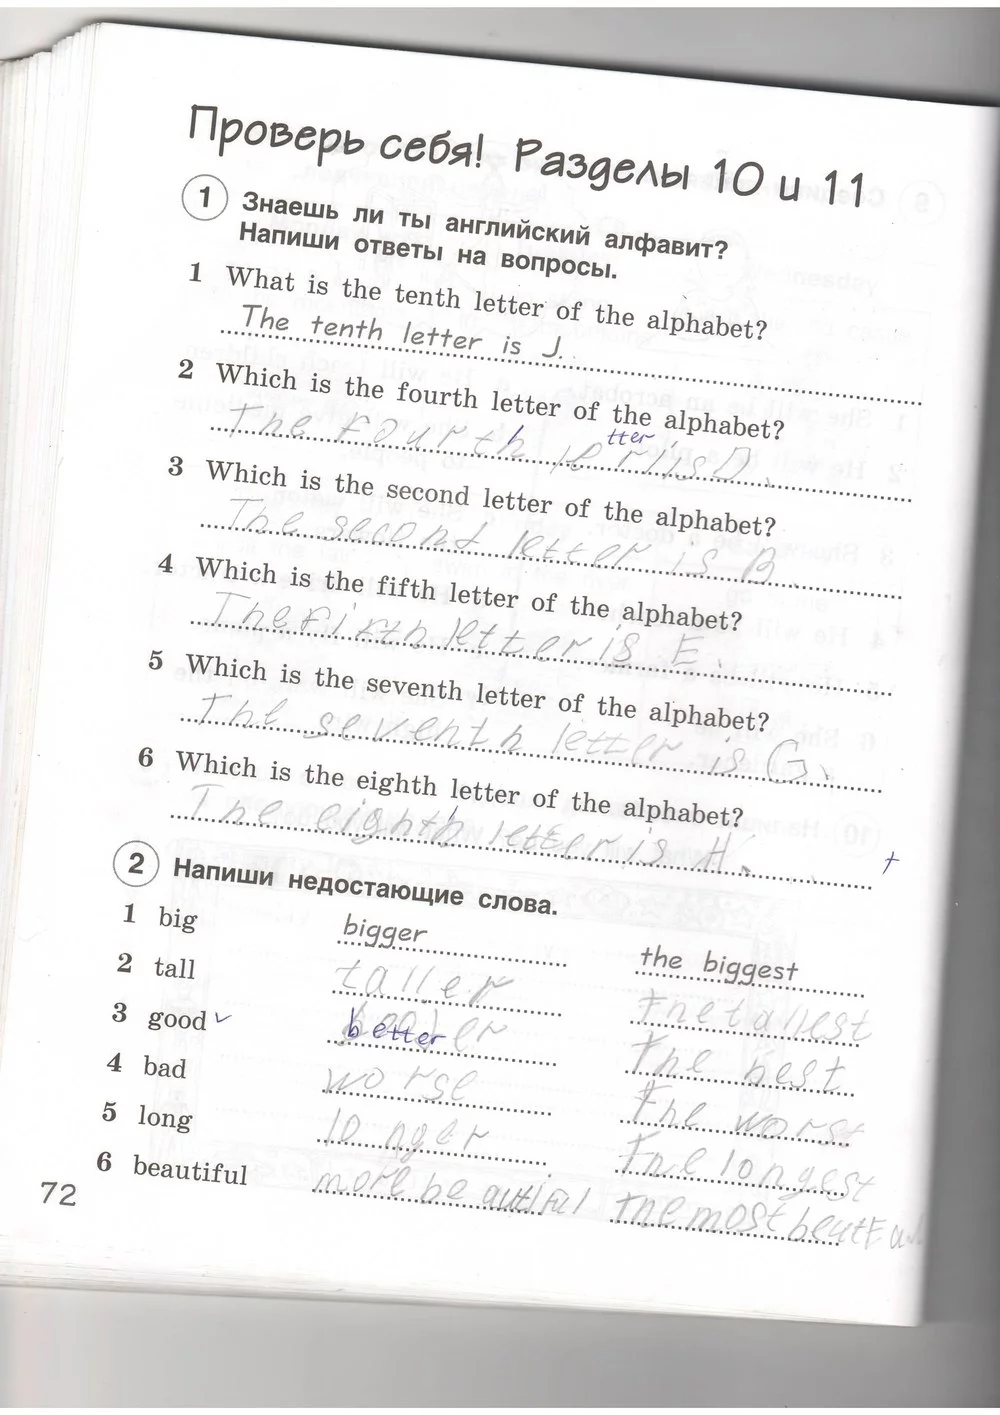 Проверь себя! Разделы 10 и 11
1 Знаешь ли ты английский алфавит?
Напиши ответы на вопросы.
1 What is the tenth letter of the alphabet?
The tenth letter is J.
2 Which is the fourth letter of the alphabet?
The fourth letter is D.
3 Which is the second letter of the alphabet?
The second letter is B.
4 Which is the fifth letter of the alphabet?
The fifth letter is E.
5 Which is the seventh letter of the alphabet?
The seventh letter is G.
6 Which is the eighth letter of the alphabet?
The eighth letter is H.
+
2 Напиши недостающие слова.
1 big bigger the biggest
2 tall taller the tallest
3 good better the best
4 bad worse the worst
5 long longer the longest
6 beautiful more beautiful the most
72